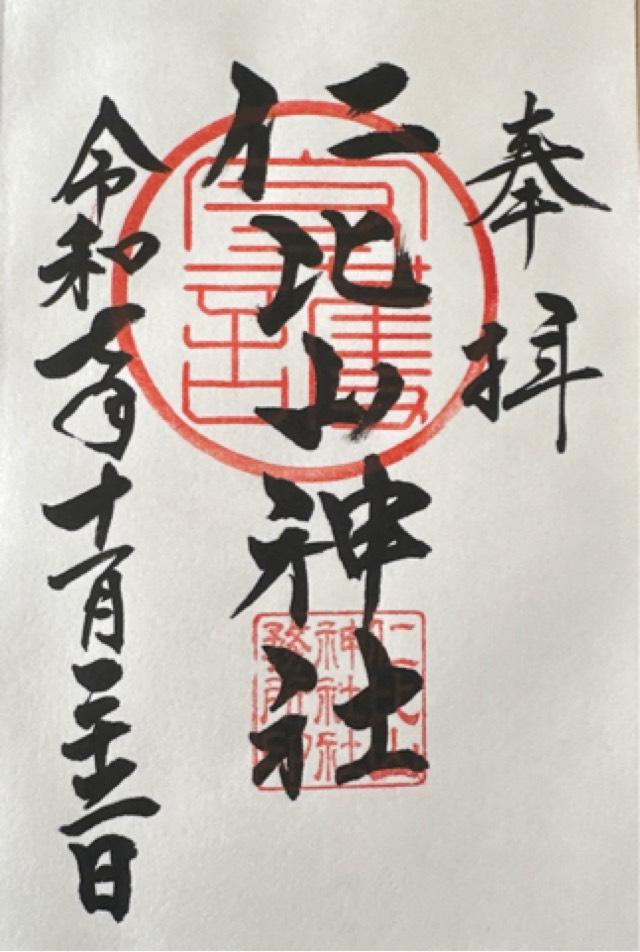 奉拝
仁比山神社
令和七年十月二十二日
仁比山
神社社
務所印